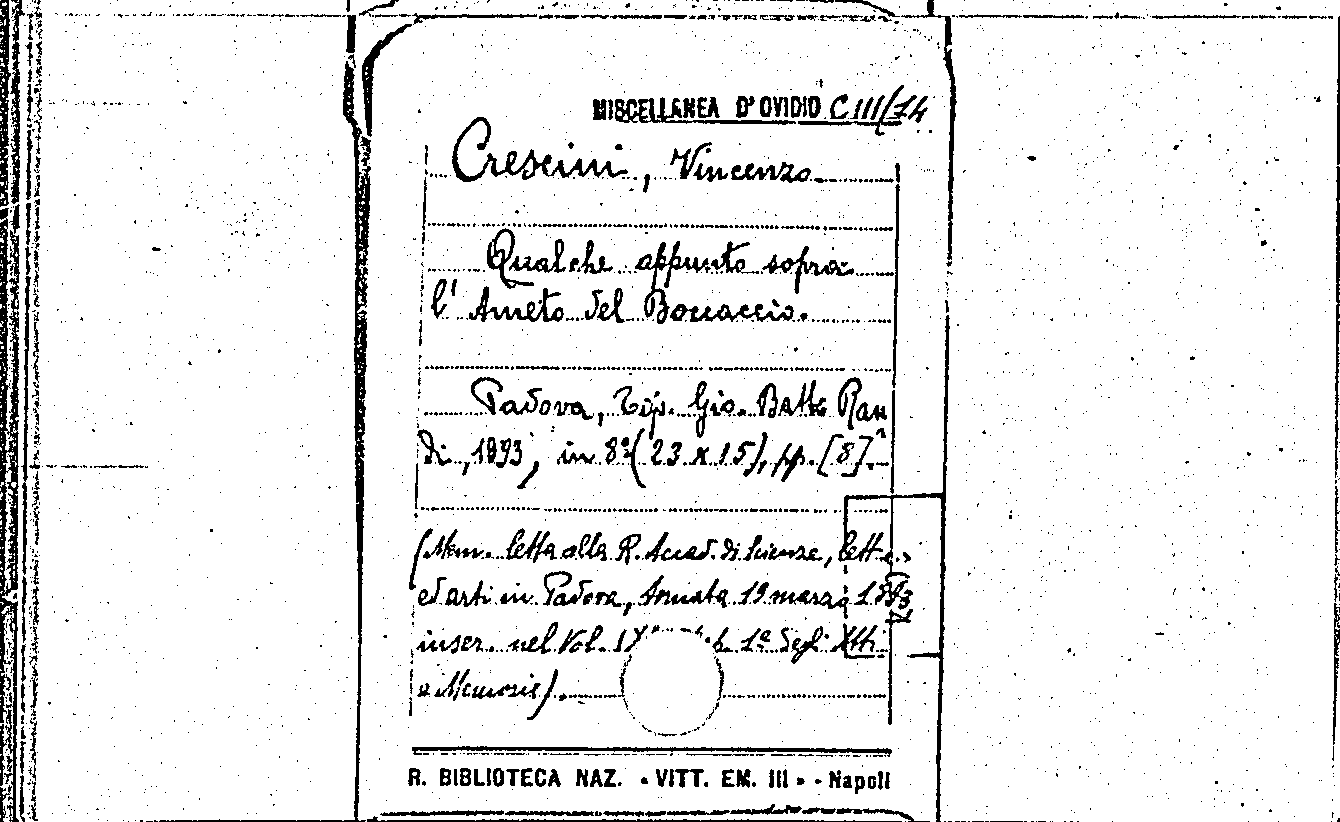 MISCELLANEA D'OVIDIO C III/14
Crescini, Vincenzo
Qualche appunto sopra
l' Ameto del Boccaccio.
Padova, Tip. Gio. Batt. Ran
di, 1893, in 8º (23 x 15), pp. [8].
(Mem. letta alla R. Accad. di Scienze, lett.
ed arti in Padova, tornata 19 marzo 1893,
inser. nel Vol. 1ª degli Atti
e Memorie).
R. BIBLIOTECA NAZ. « VITT. EM. III » - Napoli